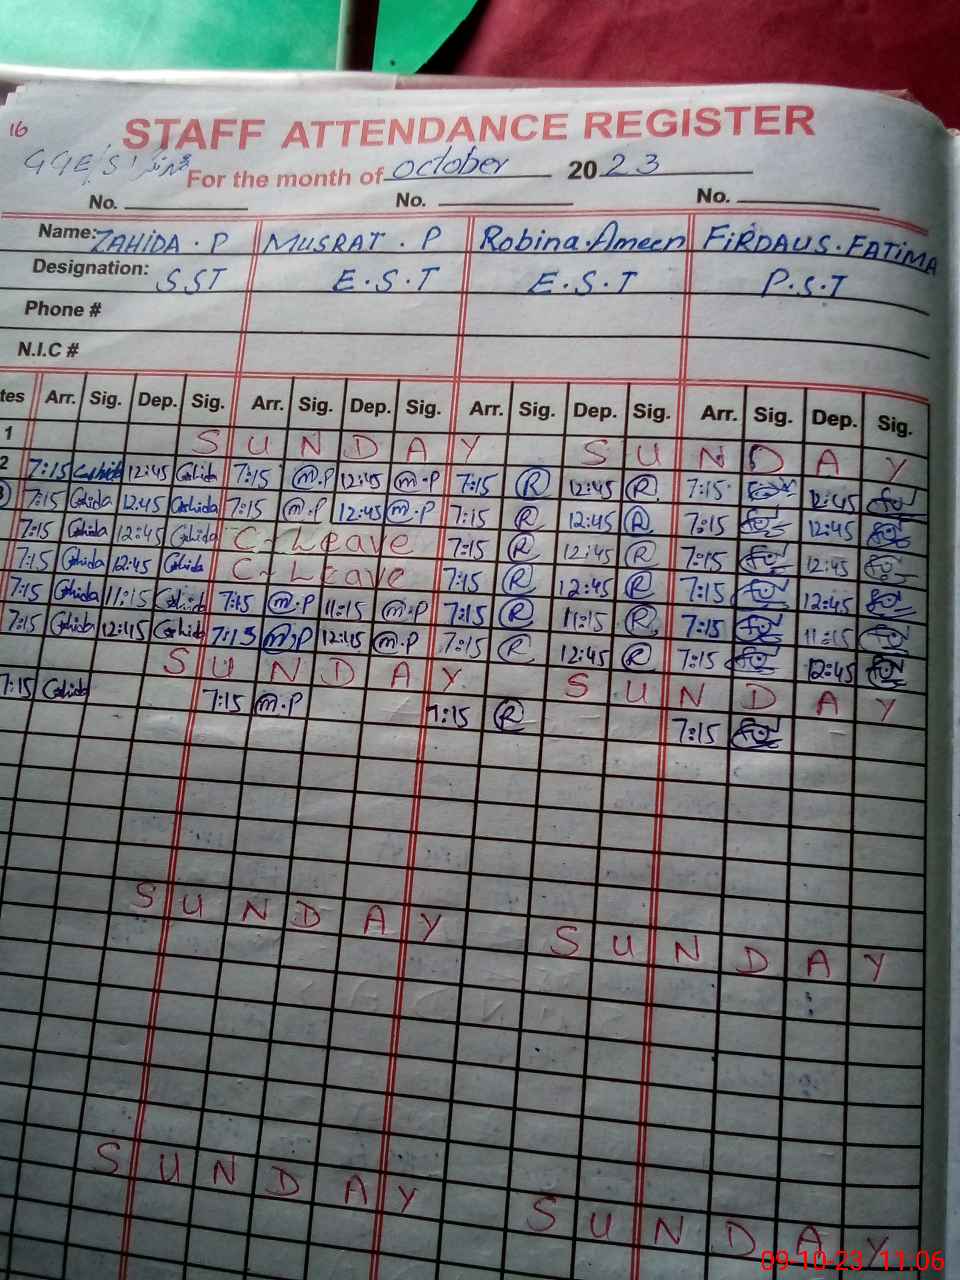 16
STAFF ATTENDANCE REGISTER
For the month of October 2023
No. No. No.
Name: ZAHIDA . P MUSRAT . P Robina . Ameen FIRDAUS . FATIMA
Designation: SST E.S.T E.S.T P.S.T
Phone #
N.I.C #
tes Arr. Sig. Dep. Sig. Arr. Sig. Dep. Sig. Arr. Sig. Dep. Sig. Arr. Sig. Dep. Sig.
1 SUNDAY SUNDAY
2 7:15 12:45 7:15 M.P 12:45 M.P 7:15 R 12:45 R 7:15 12:45
3 7:15 12:45 7:15 M.P 12:45 M.P 7:15 R 12:45 R 7:15 12:45
7:15 12:45 C-Leave 7:15 R 12:45 R 7:15 12:45
7:15 12:45 C-Leave 7:15 R 12:45 R 7:15 12:45
7:15 11:15 7:15 M.P 11:15 M.P 7:15 R 11:15 R 7:15 11:15
7:15 12:45 7:15 M.P 12:45 M.P 7:15 R 12:45 R 7:15 12:45
SUNDAY SUNDAY
7:15 7:15 M.P 7:15 R 7:15
SUNDAY SUNDAY
SUNDAY SUNDAY
09-10-23 11:06